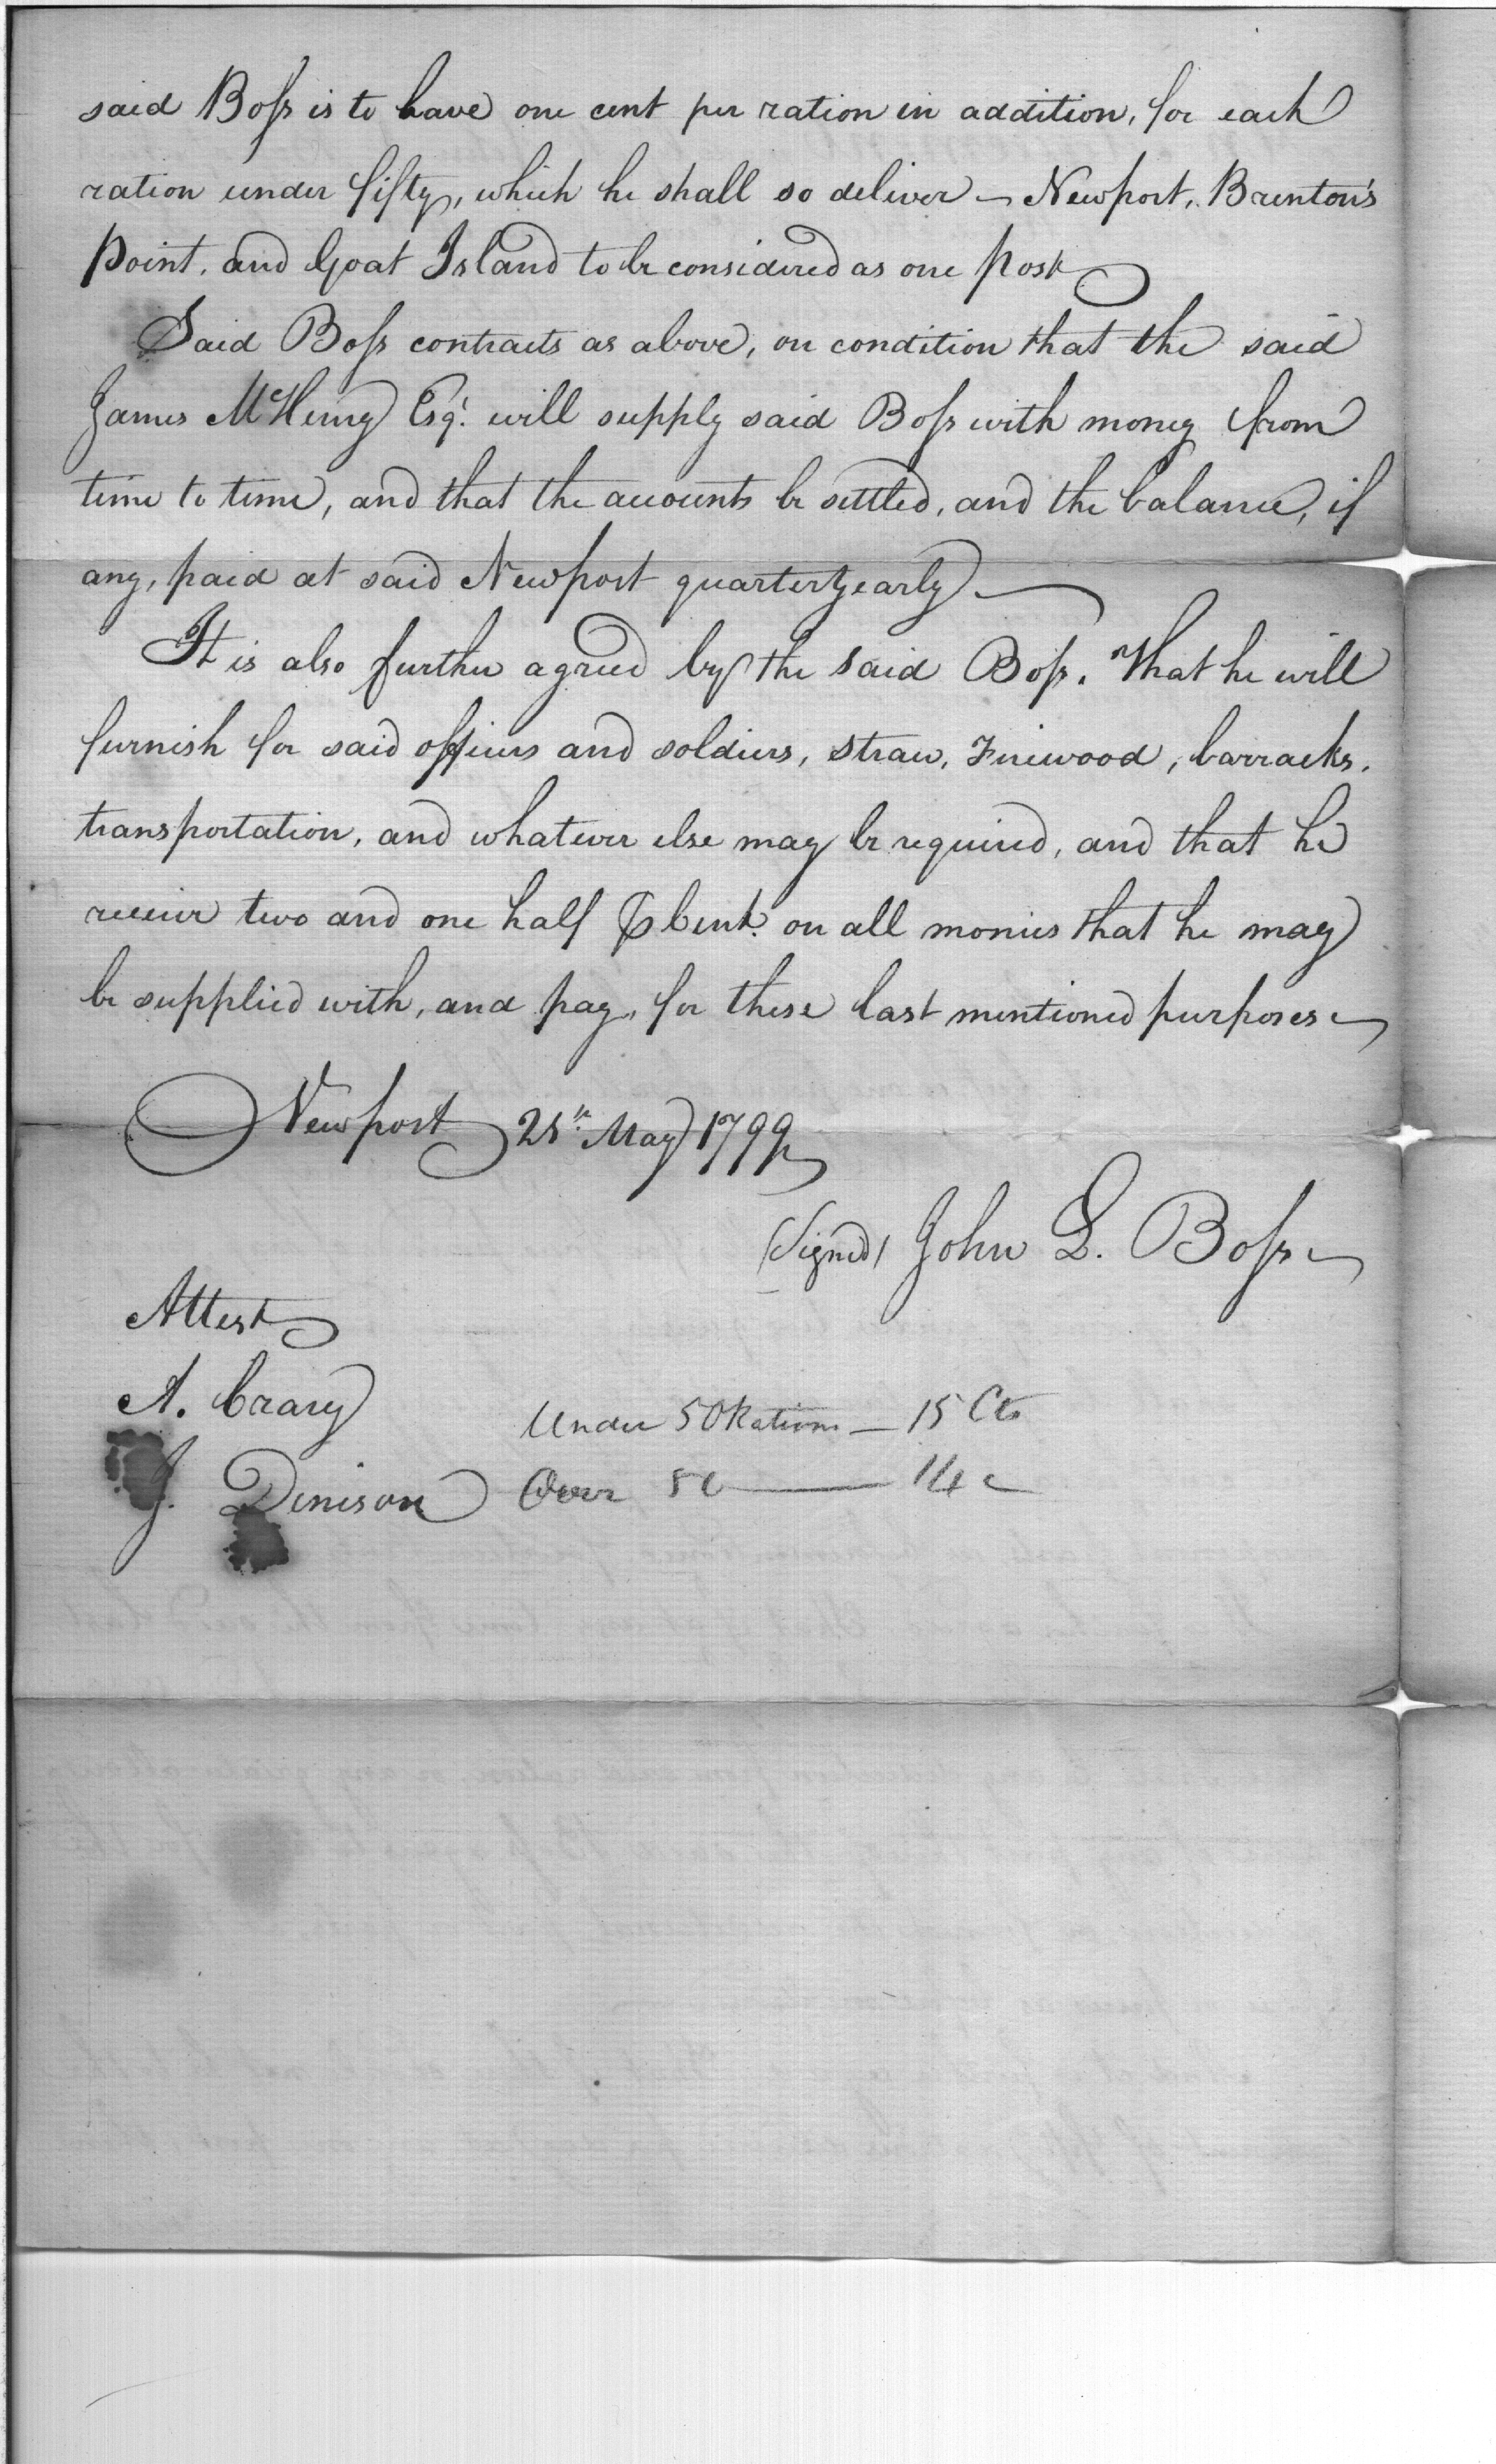 said Boſs is to have one cent per ration in addition, for each
ration under fifty, which he shall so deliver — Newport, Brenton's
Point, and Goat Island to be considered as one Post
Said Boſs contracts as above, on condition that the said
James McHenry Esqr. will supply said Boſs with money from
time to time, and that the accounts be settled, and the balance, if
any, paid at said Newport quarterlyearly —
It is also further agreed by the said Boſs. That he will
furnish for said officers and soldiers, straw, Firewood, barracks,
transportation, and whatever else may be required, and that he
receive two and one half ⅌ Cent. on all monies that he may
be supplied with, and pay, for these last mentioned purposes —
Newport 28th May 1799
(Signed) John L. Boſs
Attest
A. Crary
J. Denison
Under 50 Rations — 15 Cts
Over 50 — 14 c